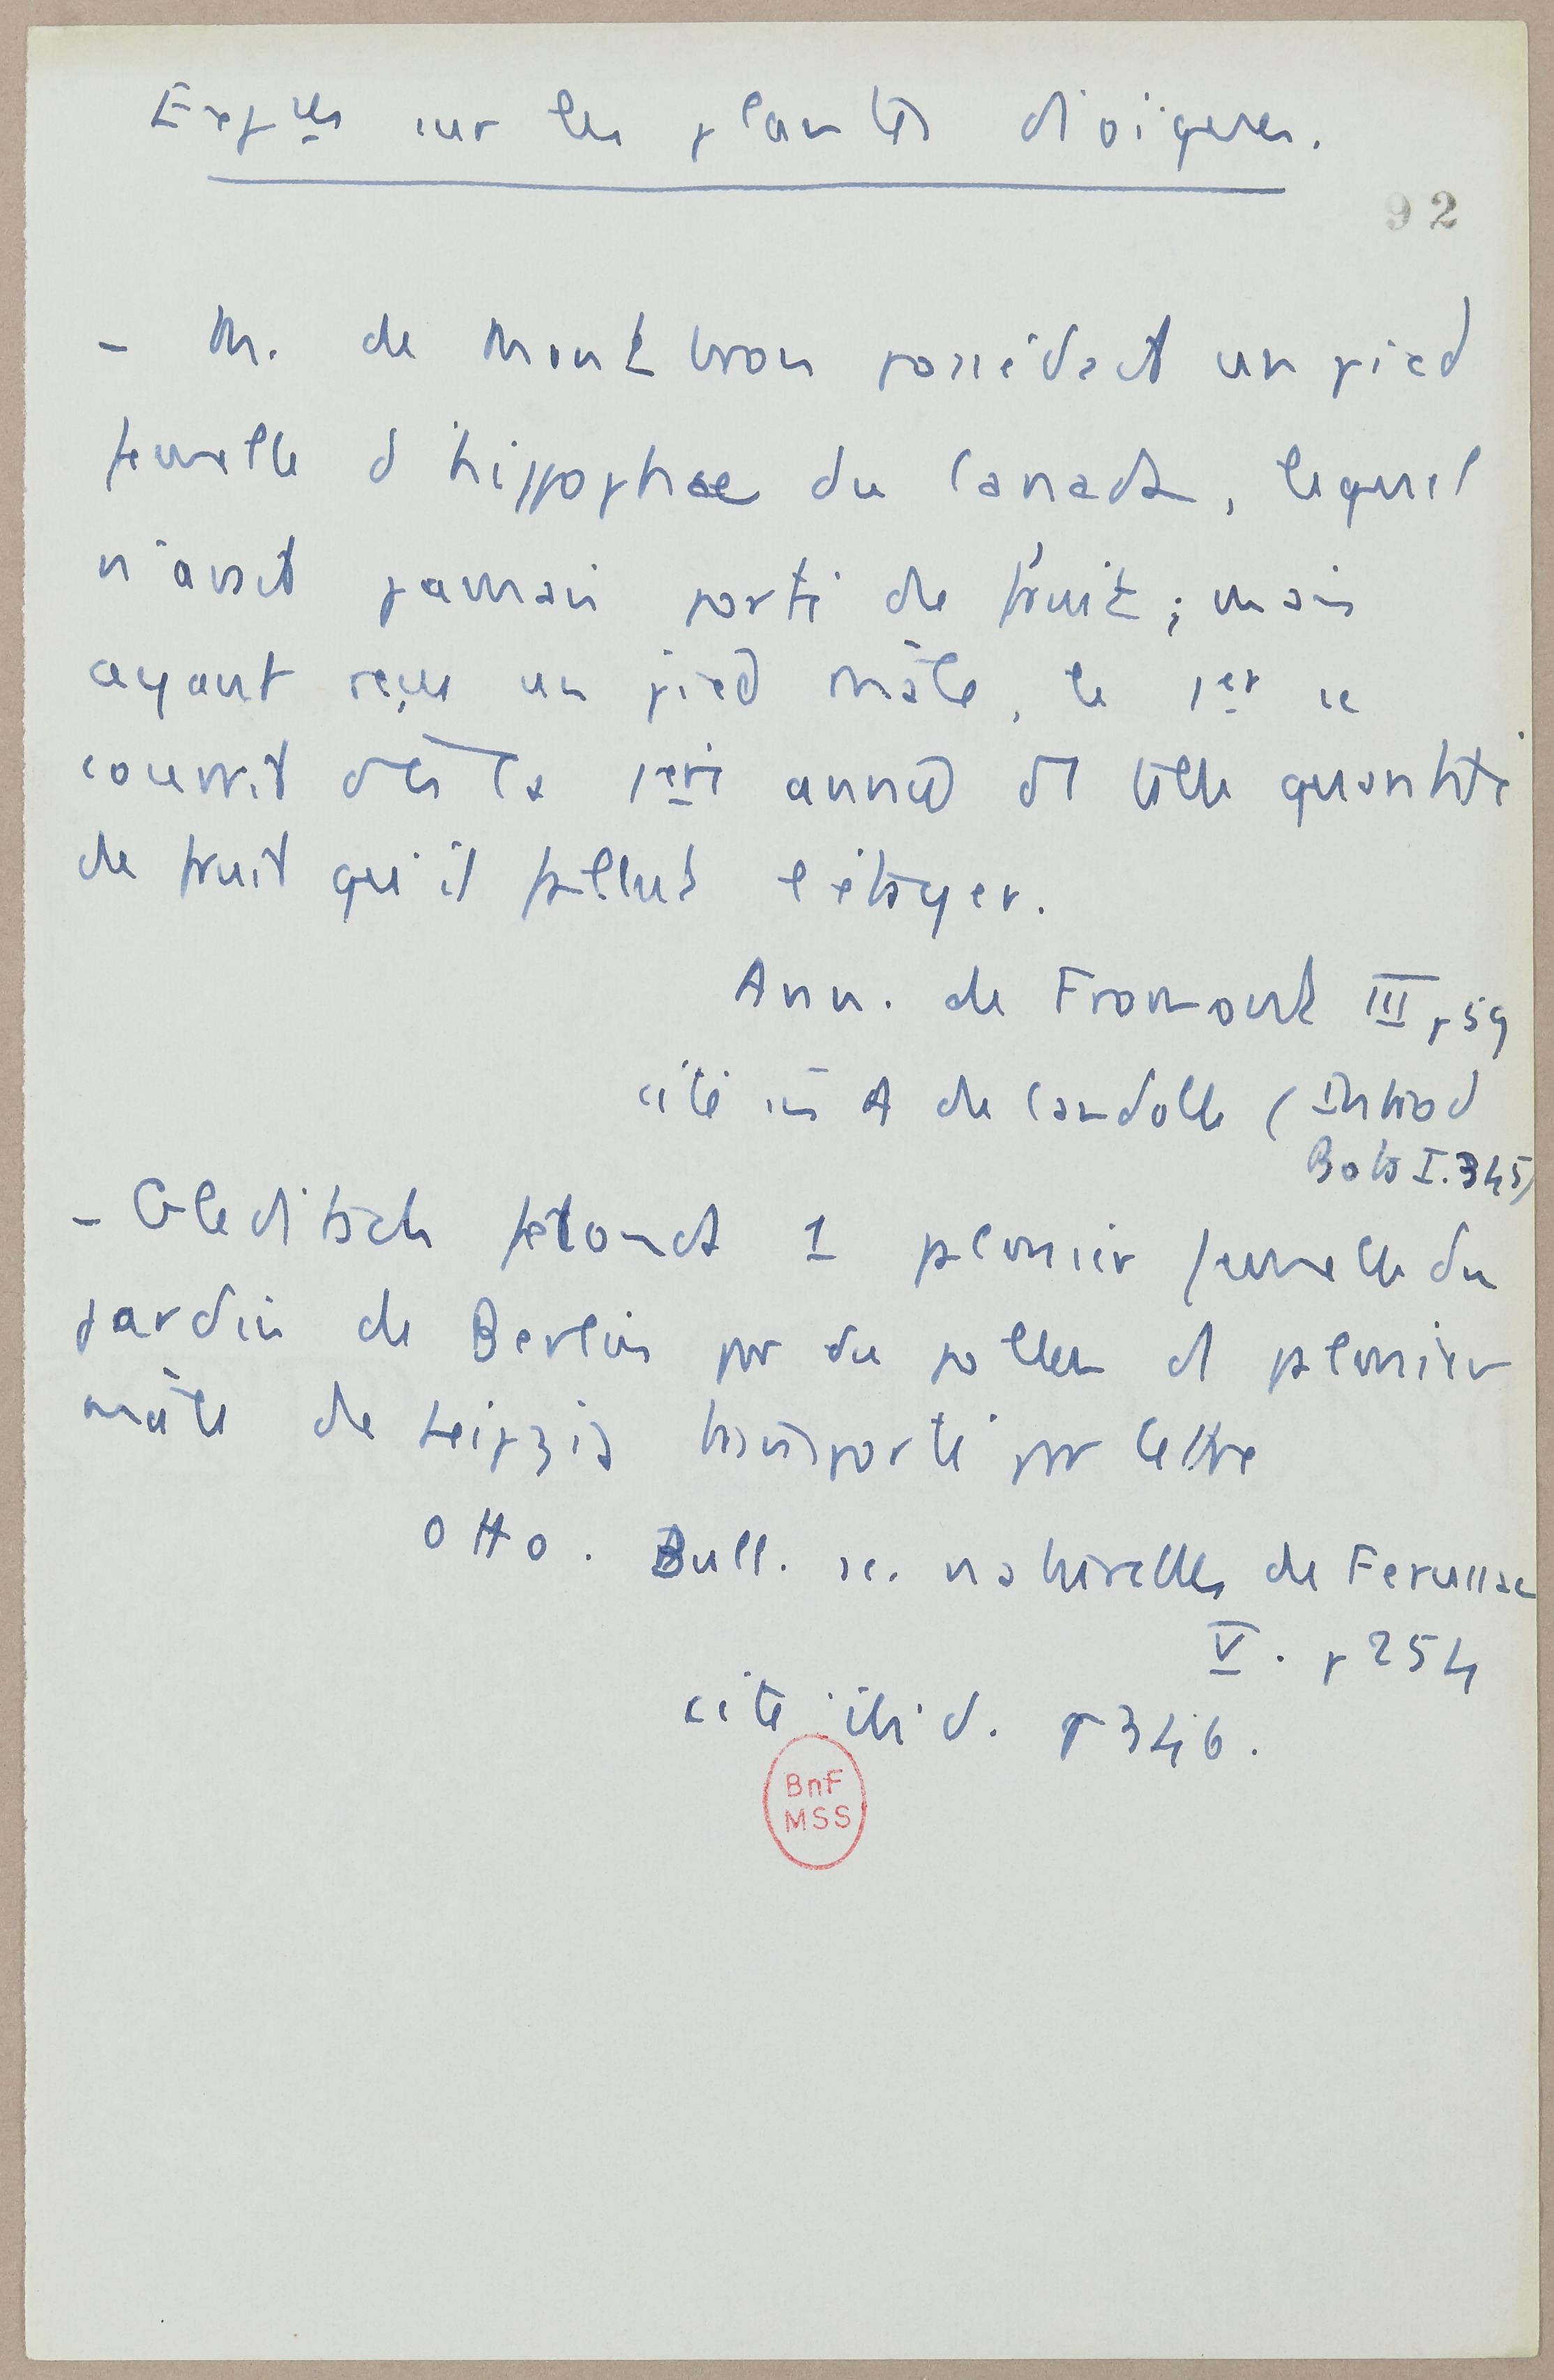 Expces sur les plantes dioïques.
92
- M. de Montbron possédait un pied
femelle d'hippophae du Canada, lequel
n'avait jamais porté de fruit ; mais
ayant reçu un pied mâle, le 1er se
couvrit dès la 1ere année de telle quantité
de fruit qu'il fallut l'étayer.
Ann. de Fromont III p 59
cité in A de Candolle (Introd
Bota I. 345)
- Gleditsch féconda 1 palmier femelle du
jardin de Berlin par du pollen de palmier
mâle de Leipzig transporté par lettre
Otto. Bull. sc. naturelles de Ferussac
V. p 254
cité ibid. p 346.
BnF
MSS